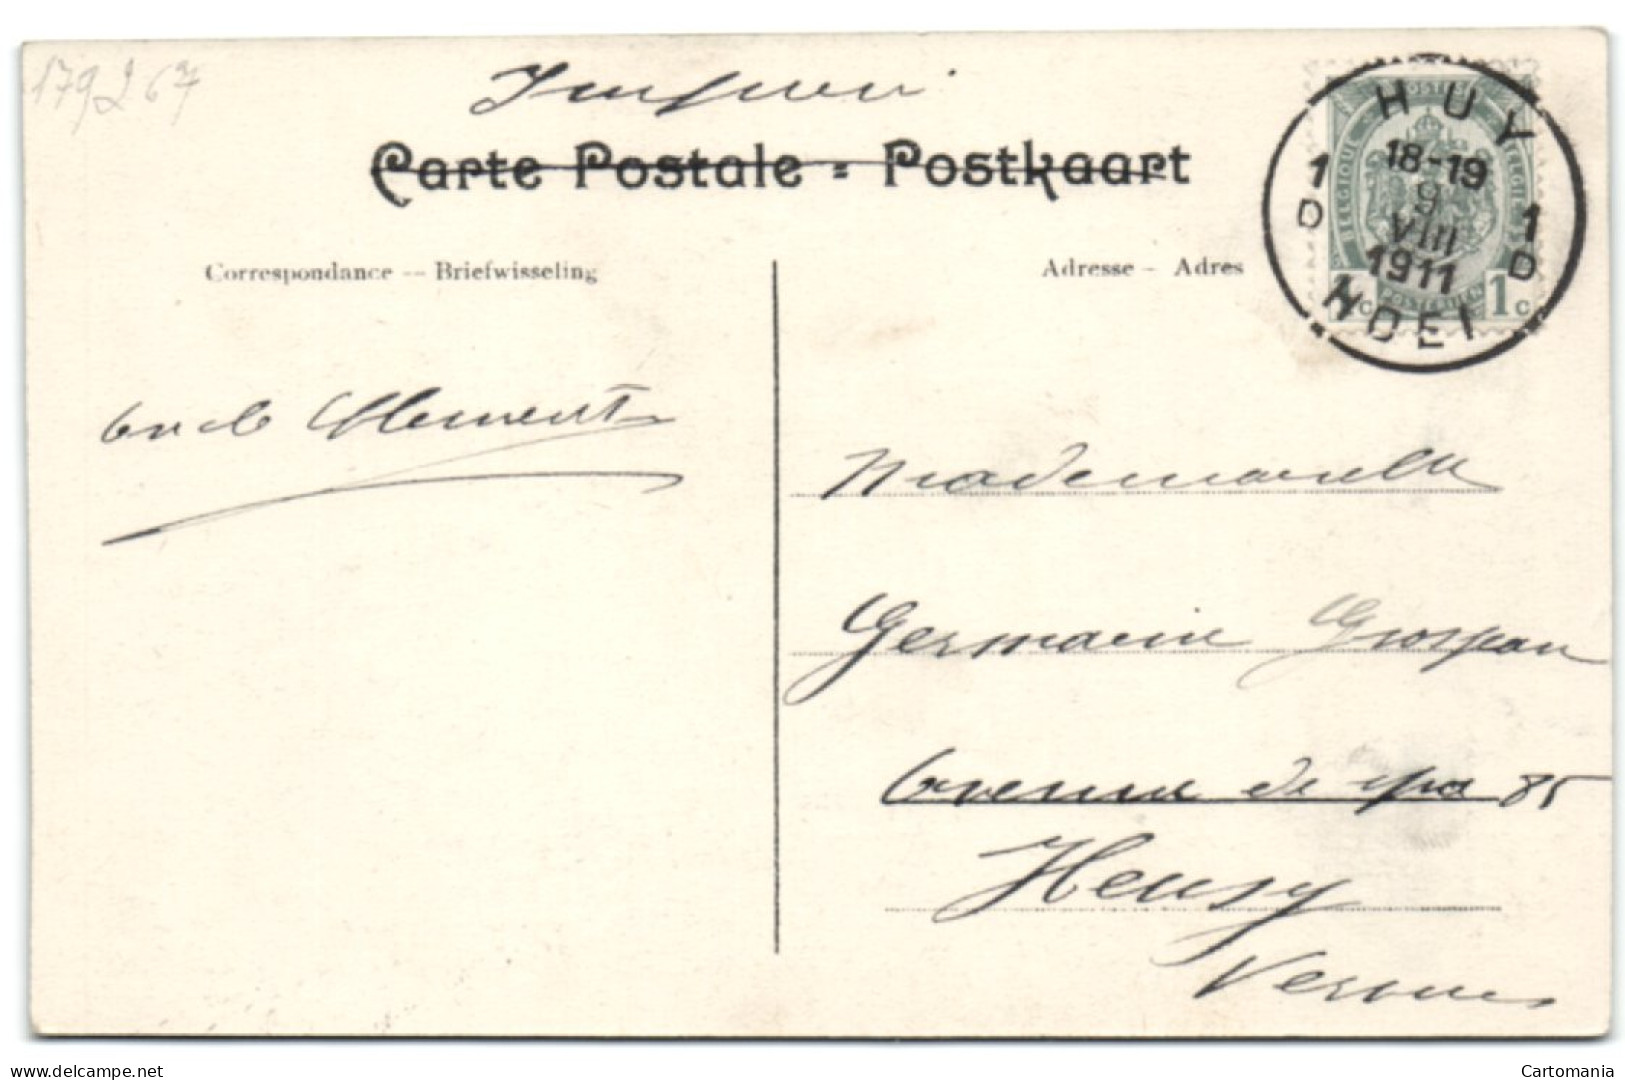 179267
Carte Postale = Postkaart
HUY
18-19
9
VIII
1911
1
D
1
D
HOEI
BELGIQUE
POSTES
BELGIE
POSTERIJEN
1c
Correspondance -- Briefwisseling
Adresse - Adres
oncle Clement
Mademoiselle
Germaine Grosjean
Avenue de spa 85
Heusy
Verviers
www.delcampe.net
Cartomania